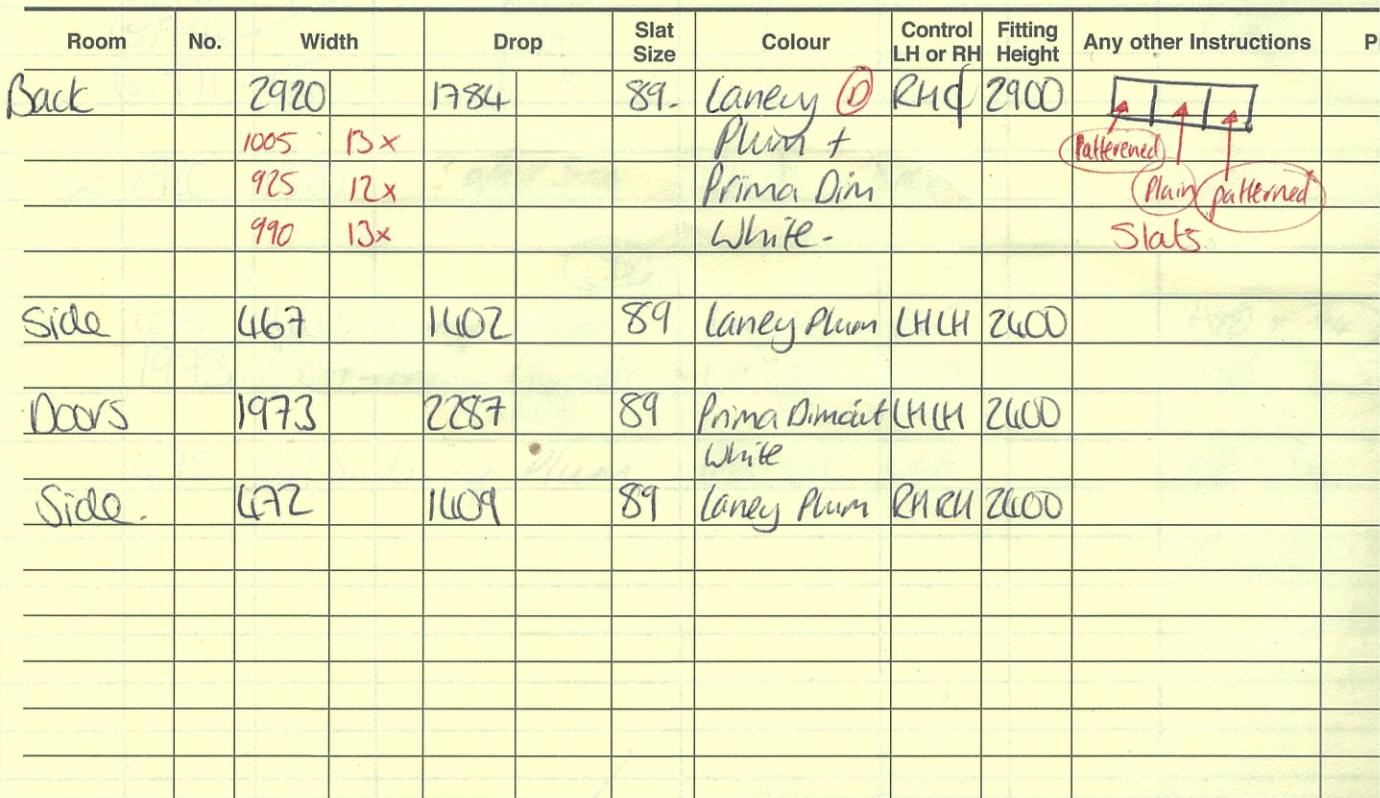 Room No. Width Drop Slat Size Colour Control LH or RH Fitting Height Any other Instructions
Back 2920 1784 89. Laney D RH 2900
1005 13x Plum + Patterened
925 12x Prima Dim Plain patterned
990 13x White- Slats
Side 467 1402 89 Laney Plum LH LH 2400
Doors 1973 2287 89 Prima Dimout LH LH 2400
White
Side. 472 1409 89 Laney Plum RH RH 2400